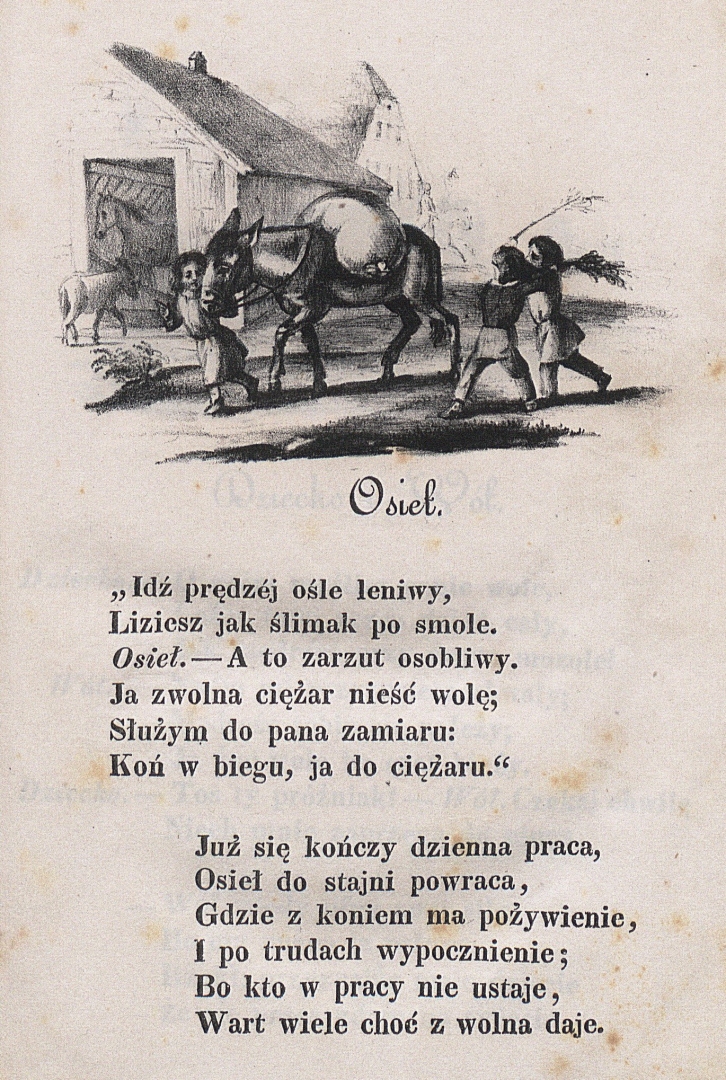 Osieł.
„Idź prędzéj ośle leniwy,
Liziesz jak ślimak po smole.
Osieł.—A to zarzut osobliwy.
Ja zwolna ciężar nieść wolę;
Służym do pana zamiaru:
Koń w biegu, ja do ciężaru.“
Już się kończy dzienna praca,
Osieł do stajni powraca,
Gdzie z koniem ma pożywienie,
I po trudach wypocznienie;
Bo kto w pracy nie ustaje,
Wart wiele choć z wolna daje.